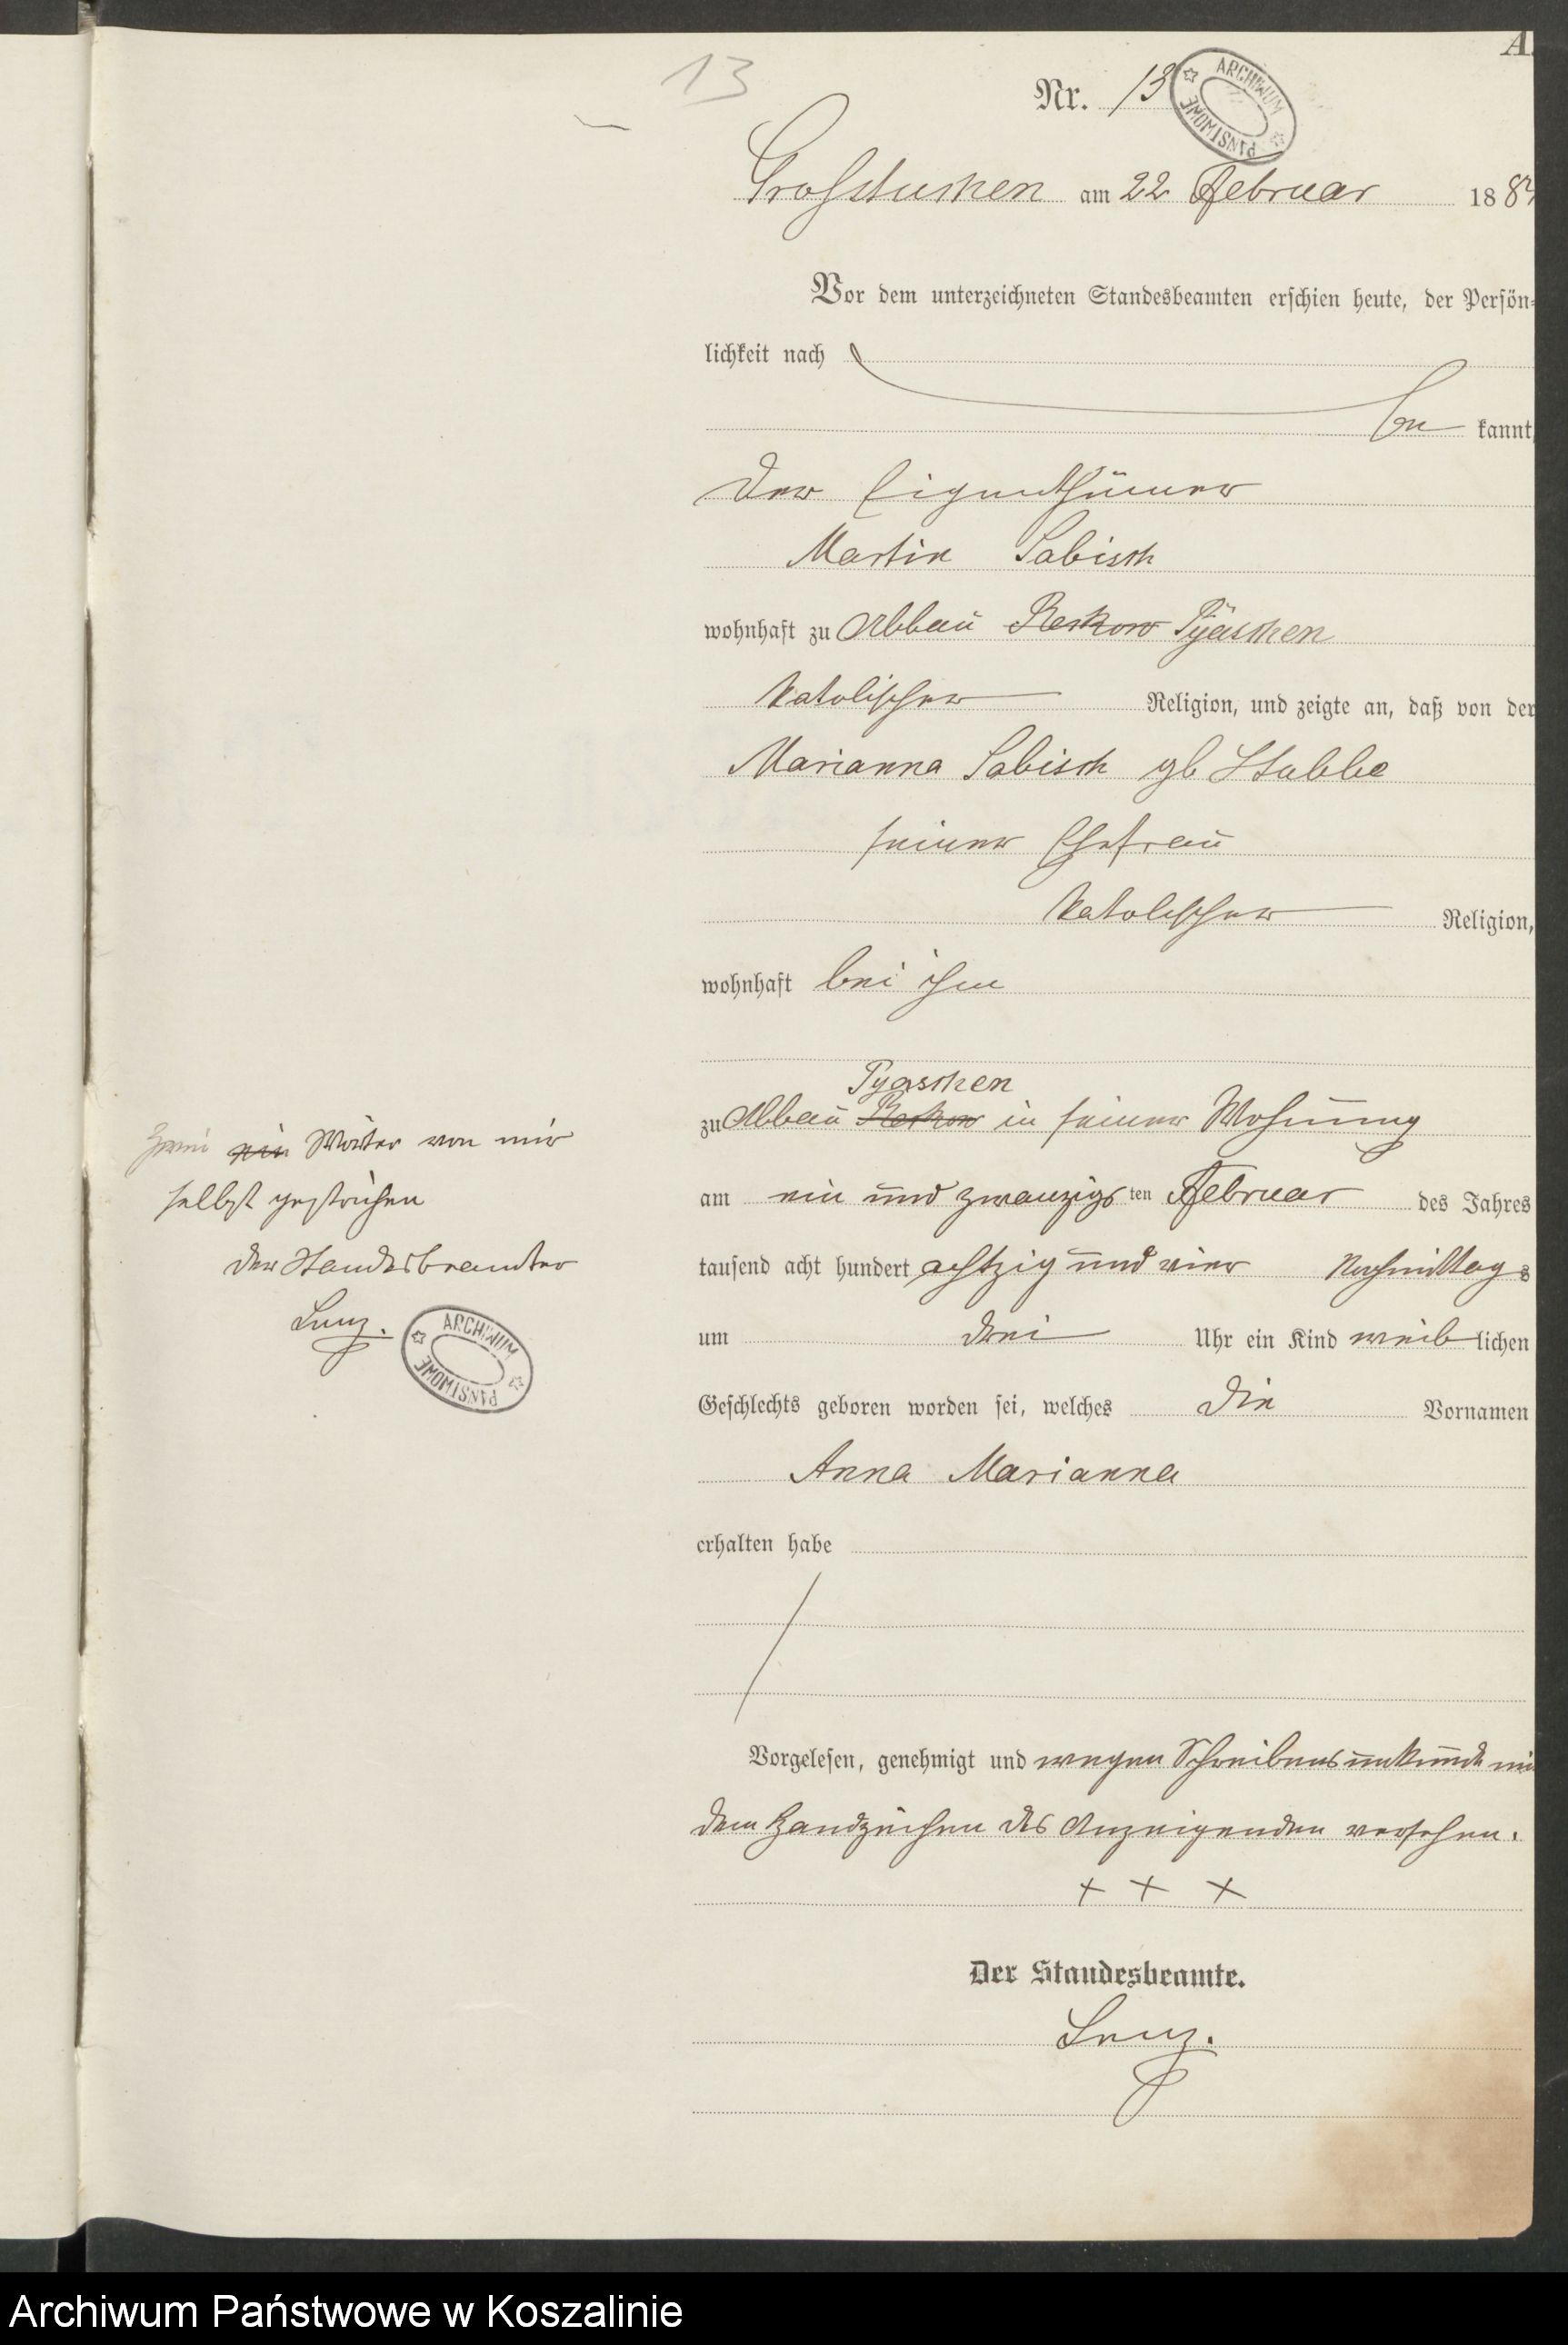 A.
13
Nr. 13
ARCHIWUM PAŃSTWOWE
Grosstuchen am 22 Februar 1884
Vor dem unterzeichneten Standesbeamten erschien heute, der Persön-
lichkeit nach
be kannt,
der Eigenthümer
Martin Sabisch
wohnhaft zu Abbau Reckow Pyaschen
katolischer Religion, und zeigte an, daß von der
Marianna Sabisch gb Stubbe
seiner Ehefrau
katolischer Religion,
wohnhaft bei ihm
Pyaschen
zu Abbau Reckow in seiner Wohnung
am ein und zwanzigs ten Februar des Jahres
tausend acht hundert achtzig und vier Nachmittag s
um drei Uhr ein Kind weib lichen
Geschlechts geboren worden sei, welches die Vornamen
Anna Marianna
erhalten habe
Zwei ein Wörter von mir
selbst gestrichen
Der Standesbeamter
Lenz.
ARCHIWUM PAŃSTWOWE
Vorgelesen, genehmigt und wegen Schreibensunkunde mit
dem Handzeichen des Anzeigenden versehen.
+ + +
Der Standesbeamte.
Lenz.
Archiwum Państwowe w Koszalinie